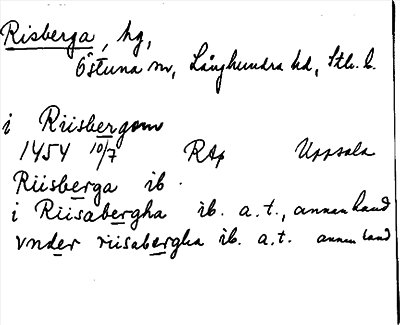 Risberga, hg,
Östuna sn, Långhundra hd, Sth. l.
i Riisbergom
1454 10/7 RAp Uppsala
Riisberga ib.
i Riisabergha ib. a.t., annan hand
vnder riisabergha ib. a.t. annan hand